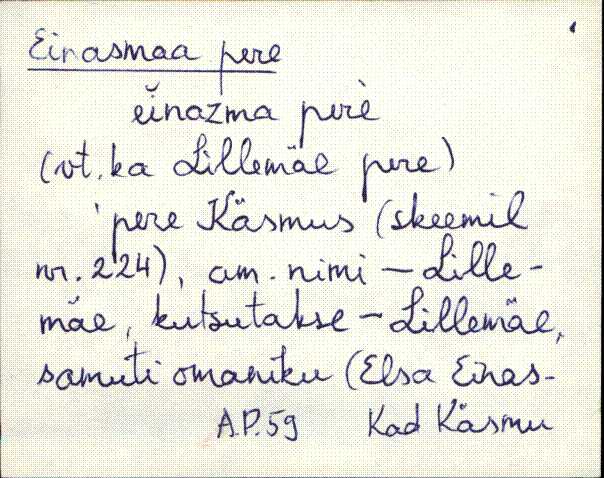 Einasmaa pere
eìnazma perè
(vt. ka Lillemäe pere)
'pere Käsmus (skeemil
nr. 224), am. nimi – Lille-
mäe, kutsutakse – Lillemäe,
samuti omaniku (Elsa Einas-
A.P.59 Kad Käsmu